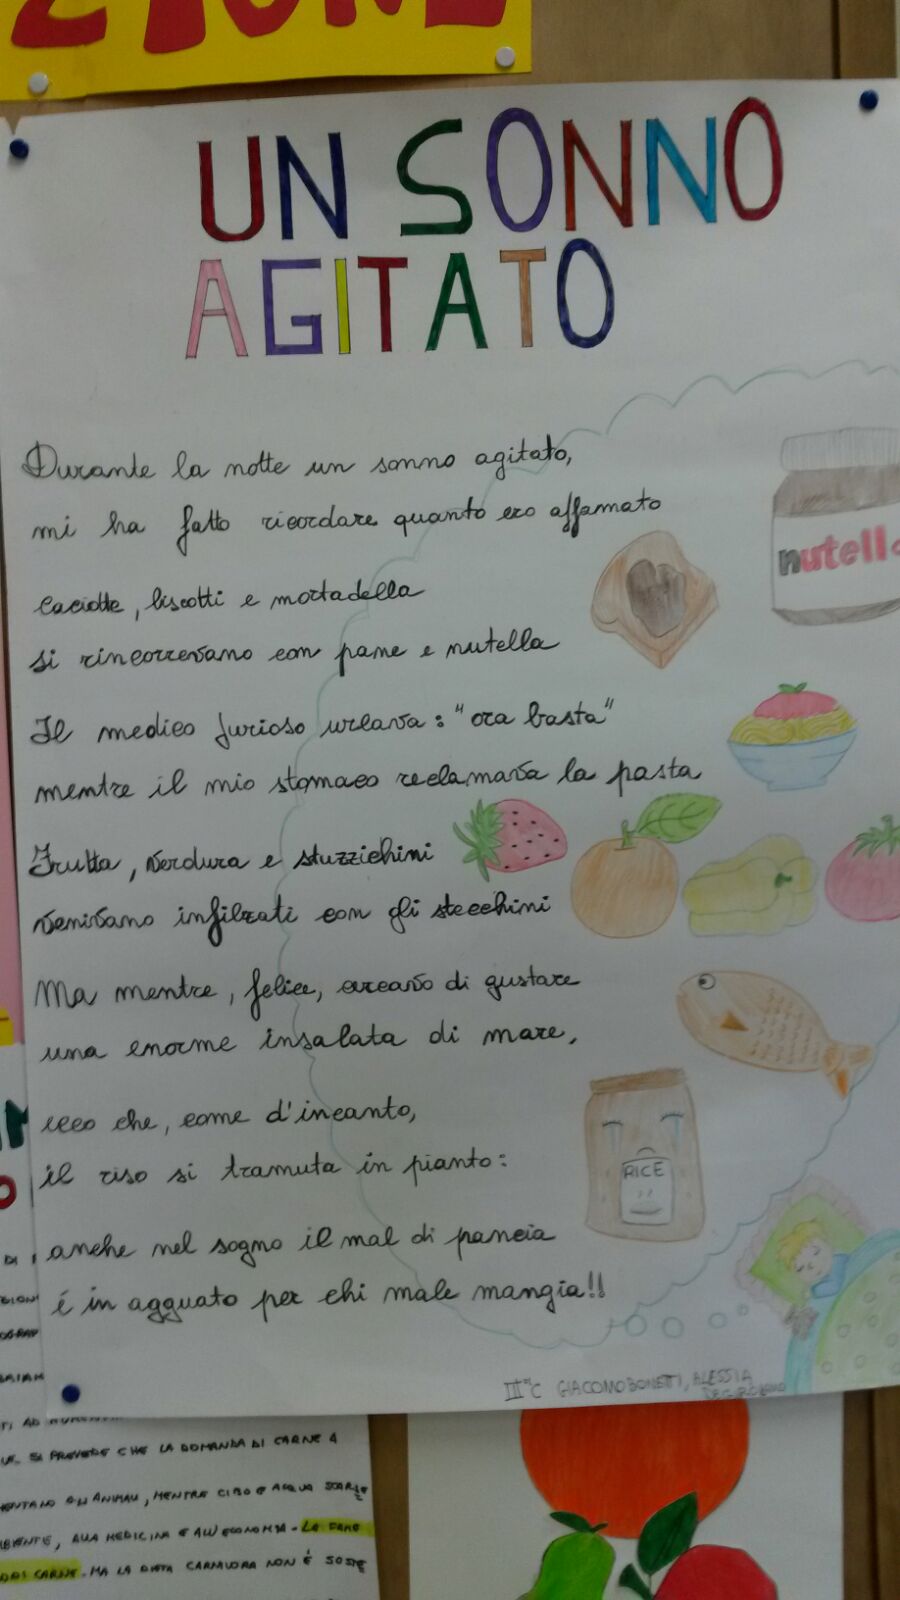 ZIONE
UN SONNO
AGITATO
Durante la notte un sonno agitato,
mi ha fatto ricordare quanto ero affamato
Caciotte, biscotti e mortadella
si rincorrevano con pane e nutella
Il medico furioso urlava: "ora basta"
mentre il mio stomaco reclamava la pasta
Frutta, verdura e stuzzichini
venivano infilzati con gli stecchini
Ma mentre, felice, cercavo di gustare
una enorme insalata di mare,
ecco che, come d'incanto,
il riso si tramuta in pianto:
anche nel sogno il mal di pancia
é in agguato per chi male mangia!!
nutell
RICE
III C GIACOMO BONETTI, ALESSIA
SI PREVEDE CHE LA DOMANDA DI CARNE A
ANIMALI, MENTRE CIBO E ACQUA SCARSE
ALLA MEDICINA E ALL'ECONOMIA. LA FAME
CARNE. MA LA DIETA CARNIVORA NON É SOSTE